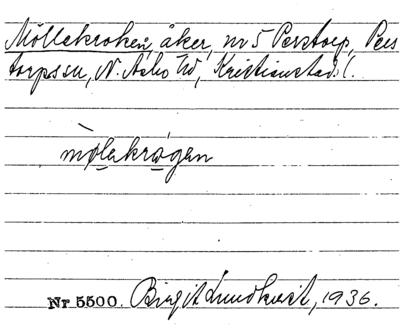 Möllekroken, åker, nr 5 Perstorp, Pers
torps sn, N. Åsbo hd, Kristianstad l.
mø̀lekrǿgan
Nr 5500. Birgit Lundkvist, 1936.